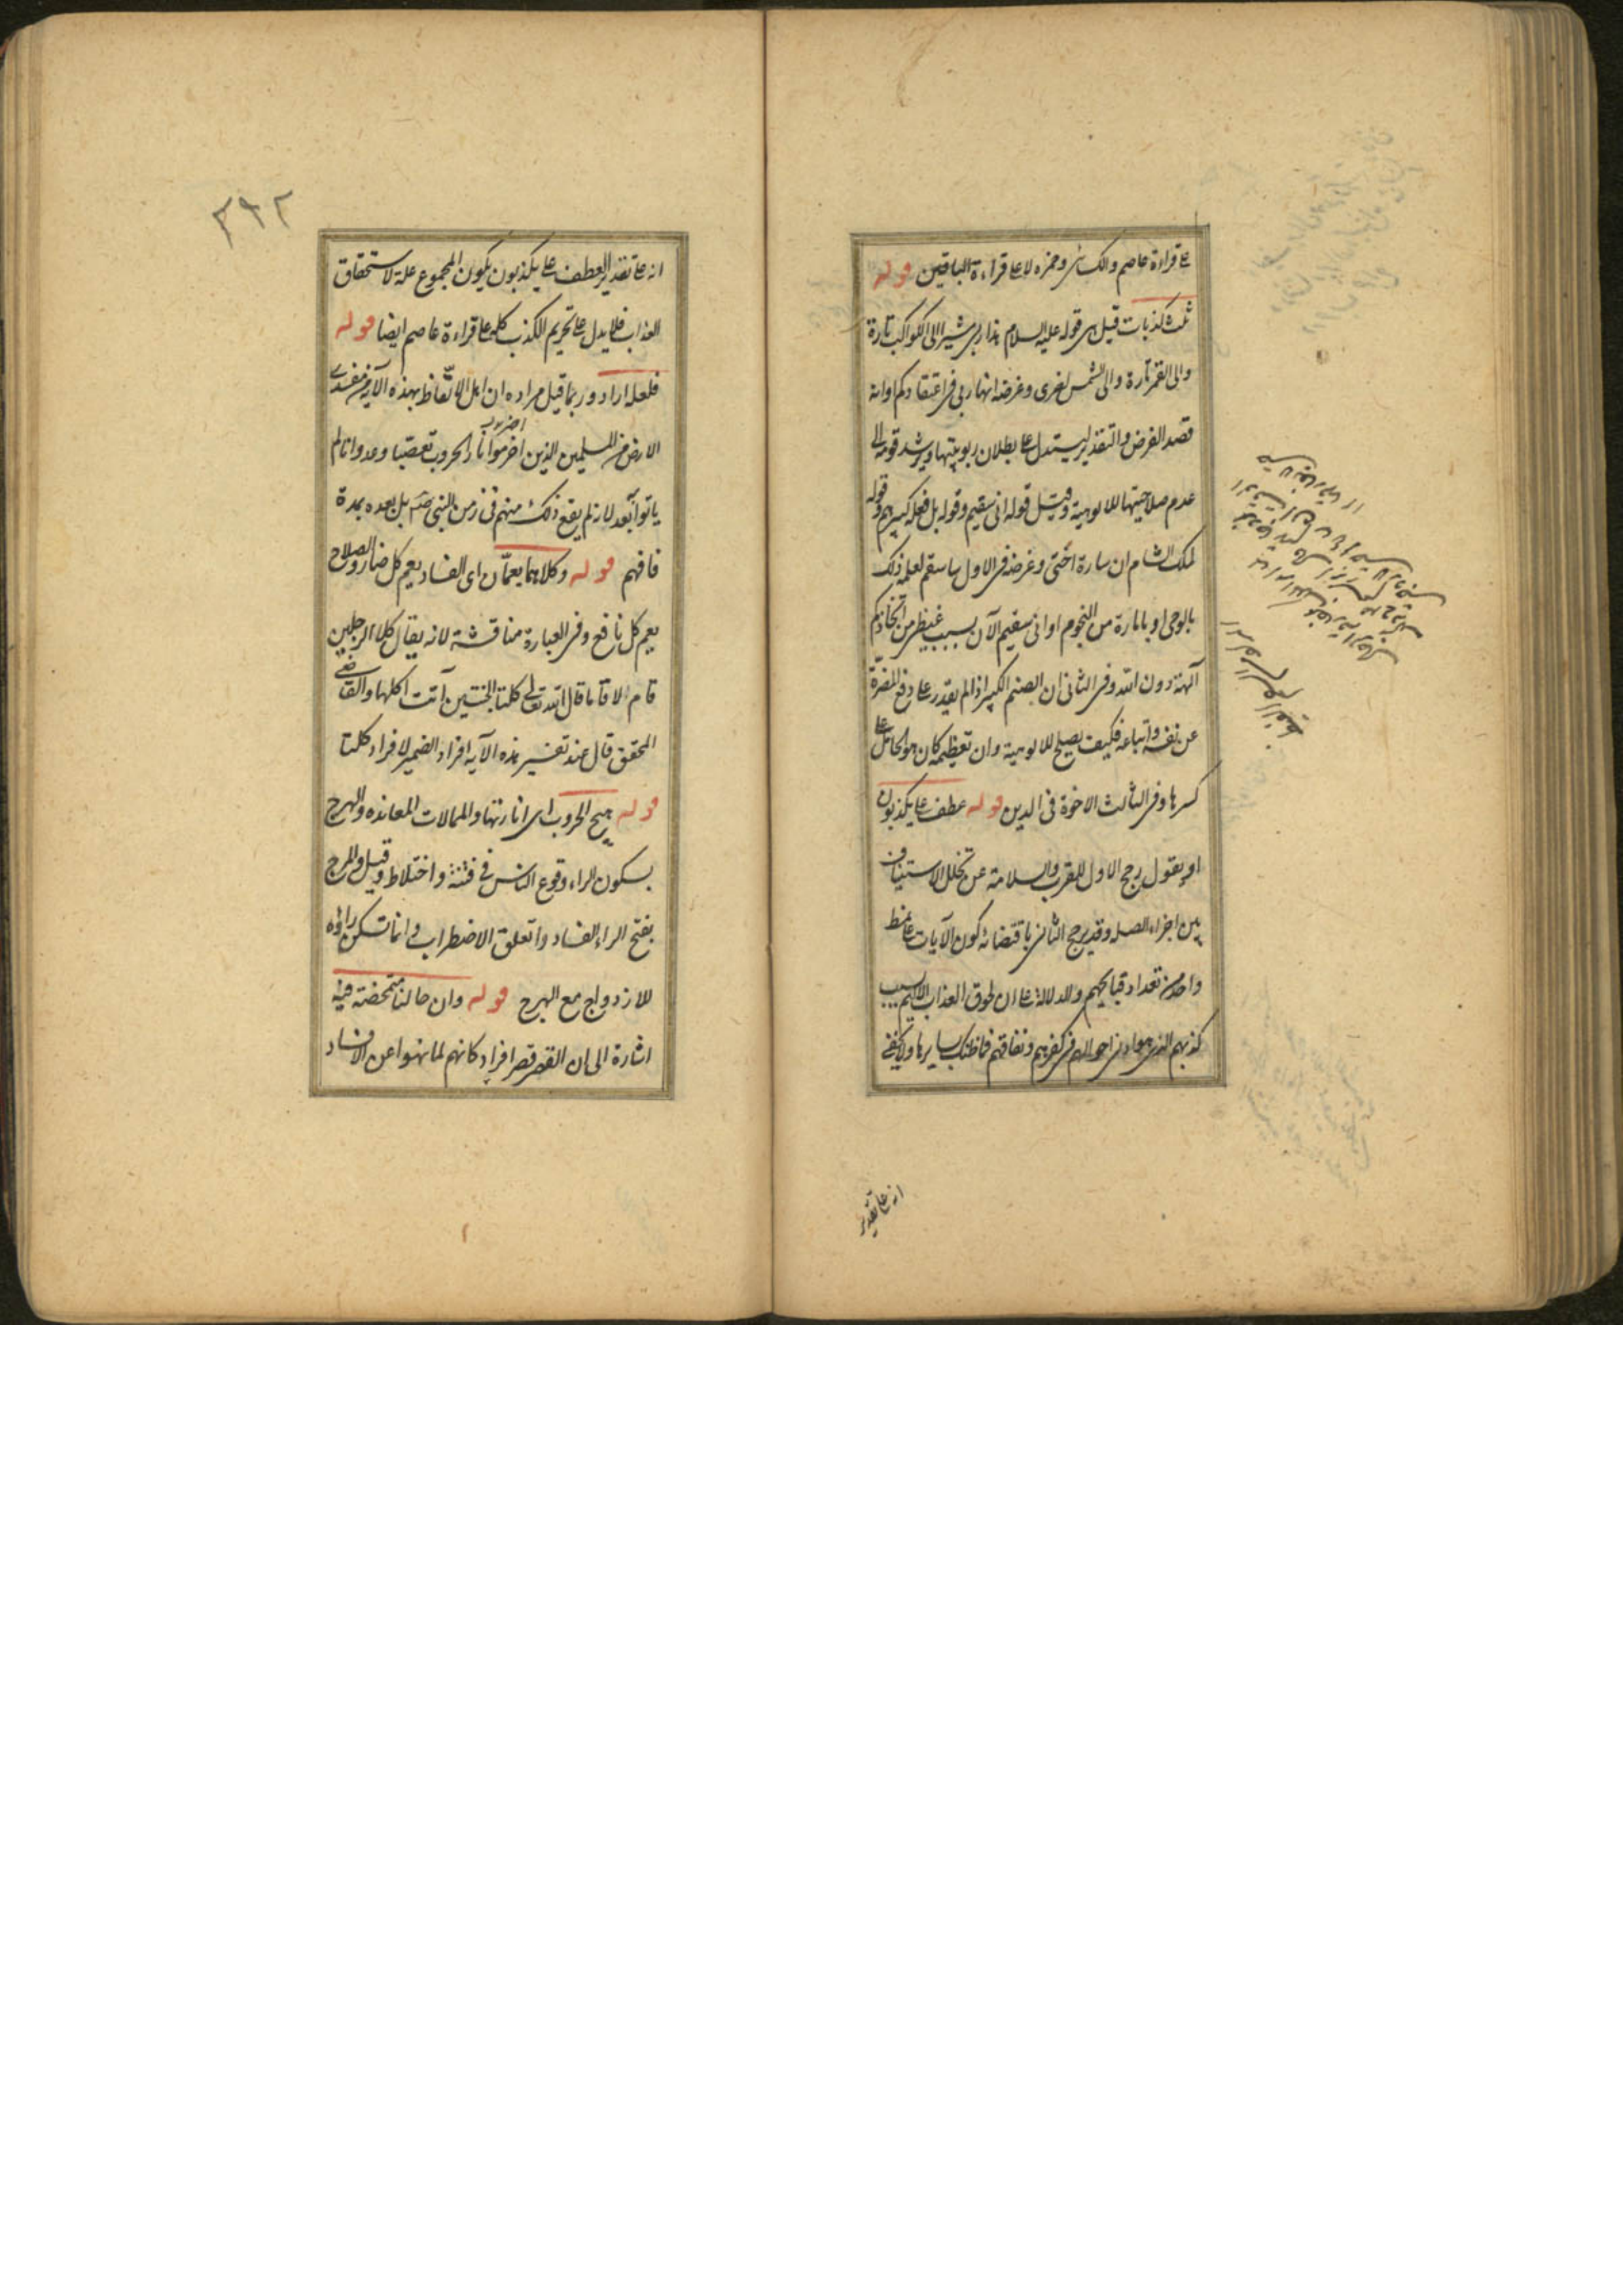 على قراءة عاصم والكسائى وحمزه لا على قراءة الباقين قوله
ثلث كذبات قيل هى قوله عليه السلام هذا ربى مشيرا الى الكواكب تارة
والى القمر تارة والى الشمس اخرى وغرضه انها ربى فى اعتقادكم او انه
قصد الفرض والتقدير ليستدل على بطلان ربوبيتها ويرشد قومه الى
عدم صلاحيتها للالوهية وقيل قوله انى سقيم وقوله بل فعله كبيرهم وقوله
لملك الشام ان سارة اختى وغرضه فى الاول ساسقم لعلمه ذلك
بالوحى او بامارة من النجوم او انى سقيم الآن بسبب غيظى من اتخاذكم
آلهة دون الله وفى الثانى ان الصنم الكبير اذا لم يقدر على دفع المضرة
عن نفسه واتباعه فكيف يصلح للالوهية وان تعظيمه كان هو الحامل على
كسرها وفى الثالث الاخوة فى الدين قوله عطف على يكذبون
او يقول رجح الاول للقرب والسلامة عن تخلل الاستيناف
بين اجزاء الصله وقد يرجح الثانى باقتضائه كون الآيات على نمط
واحد من تعداد قبايحهم والدلالة على ان لحوق العذاب الاليم بسبب
كذبهم الذى هو ادنى احوالهم فى كفرهم ونفاقهم فما ظنك بسايرها ولا يخفى
انه على تقدير
٣٩٢
انه على تقدير العطف على يكذبون يكون المجموع علة لاستحقاق
العذاب فلا يدل على تحريم الكذب كله على قراءة عاصم ايضا قوله
فلعله اراد وربما قيل مراده ان اهل الاتعاظ بهذه الآية من مفسدى
الارض من المسلمين الذين اضرموا نار الحروب تعصبا وعدوانا لم
اضرموا
ياتوا بعد لانه لم يقع ذلك منهم فى زمن النبى صلعم بل بعده بمدة
فافهم قوله وكلاهما يعمان اى الفساد يعم كل ضار والصلاح
يعم كل نافع وفى العبارة مناقشة لانه يقال كلا الرجلين
قام لا قاما قال الله تعالى كلتا الجنتين آتت اكلها والقاضى
المحقق قال عند تفسير هذه الآيه افراد الضمير لافراد كلتا
قوله هيج الحروب اى اثارتها والممالات المعانده والهرج
بسكون الراء وقوع الناس فى فتنة واختلاط وقيل والمرج
بفتح الراء الفساد والقلق الاضطراب وانما تسكن راؤه
للازدواج مع الهرج قوله وان حالنا متمحضة فيه
اشارة الى ان القصر قصر افراد كانهم لما نهوا عن الافساد